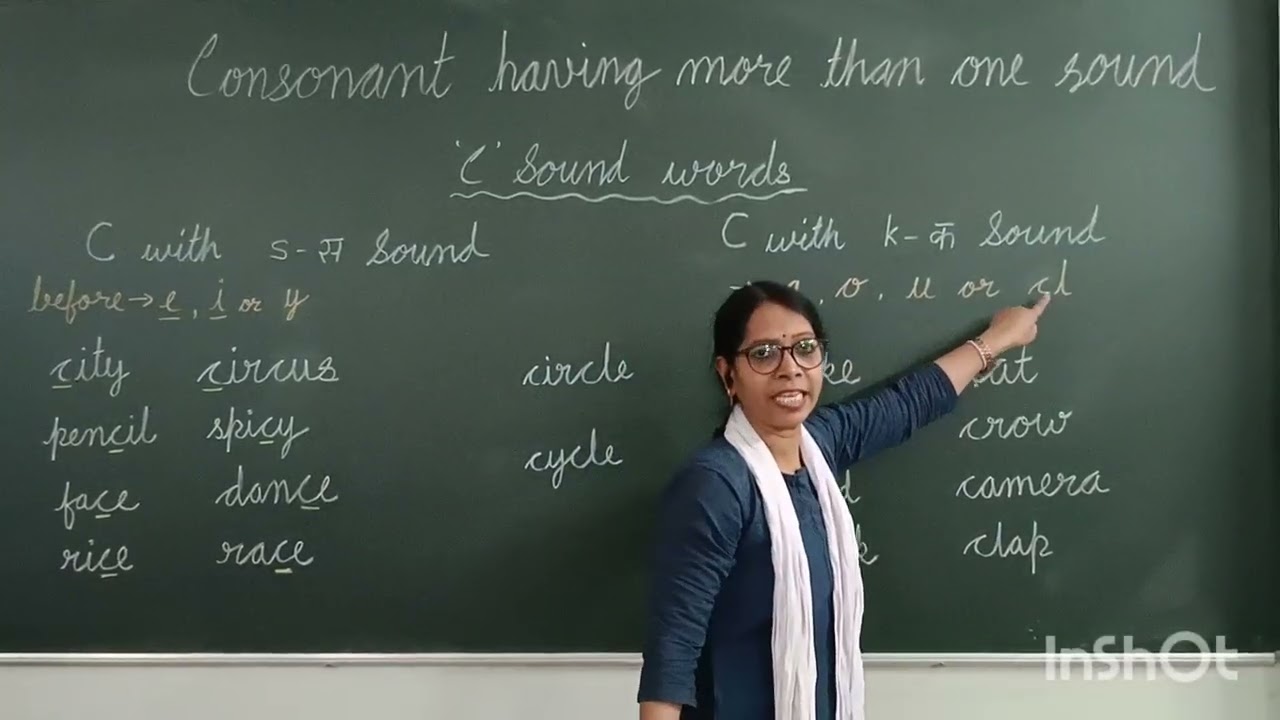 Consonant having more than one sound
'C' Sound words
C with s-स Sound
before → e, i or y
city circus circle
pencil spicy cycle
face dance
rice race
C with k-क Sound
a, o, u or cl
cat
crow
camera
clap
InShOt